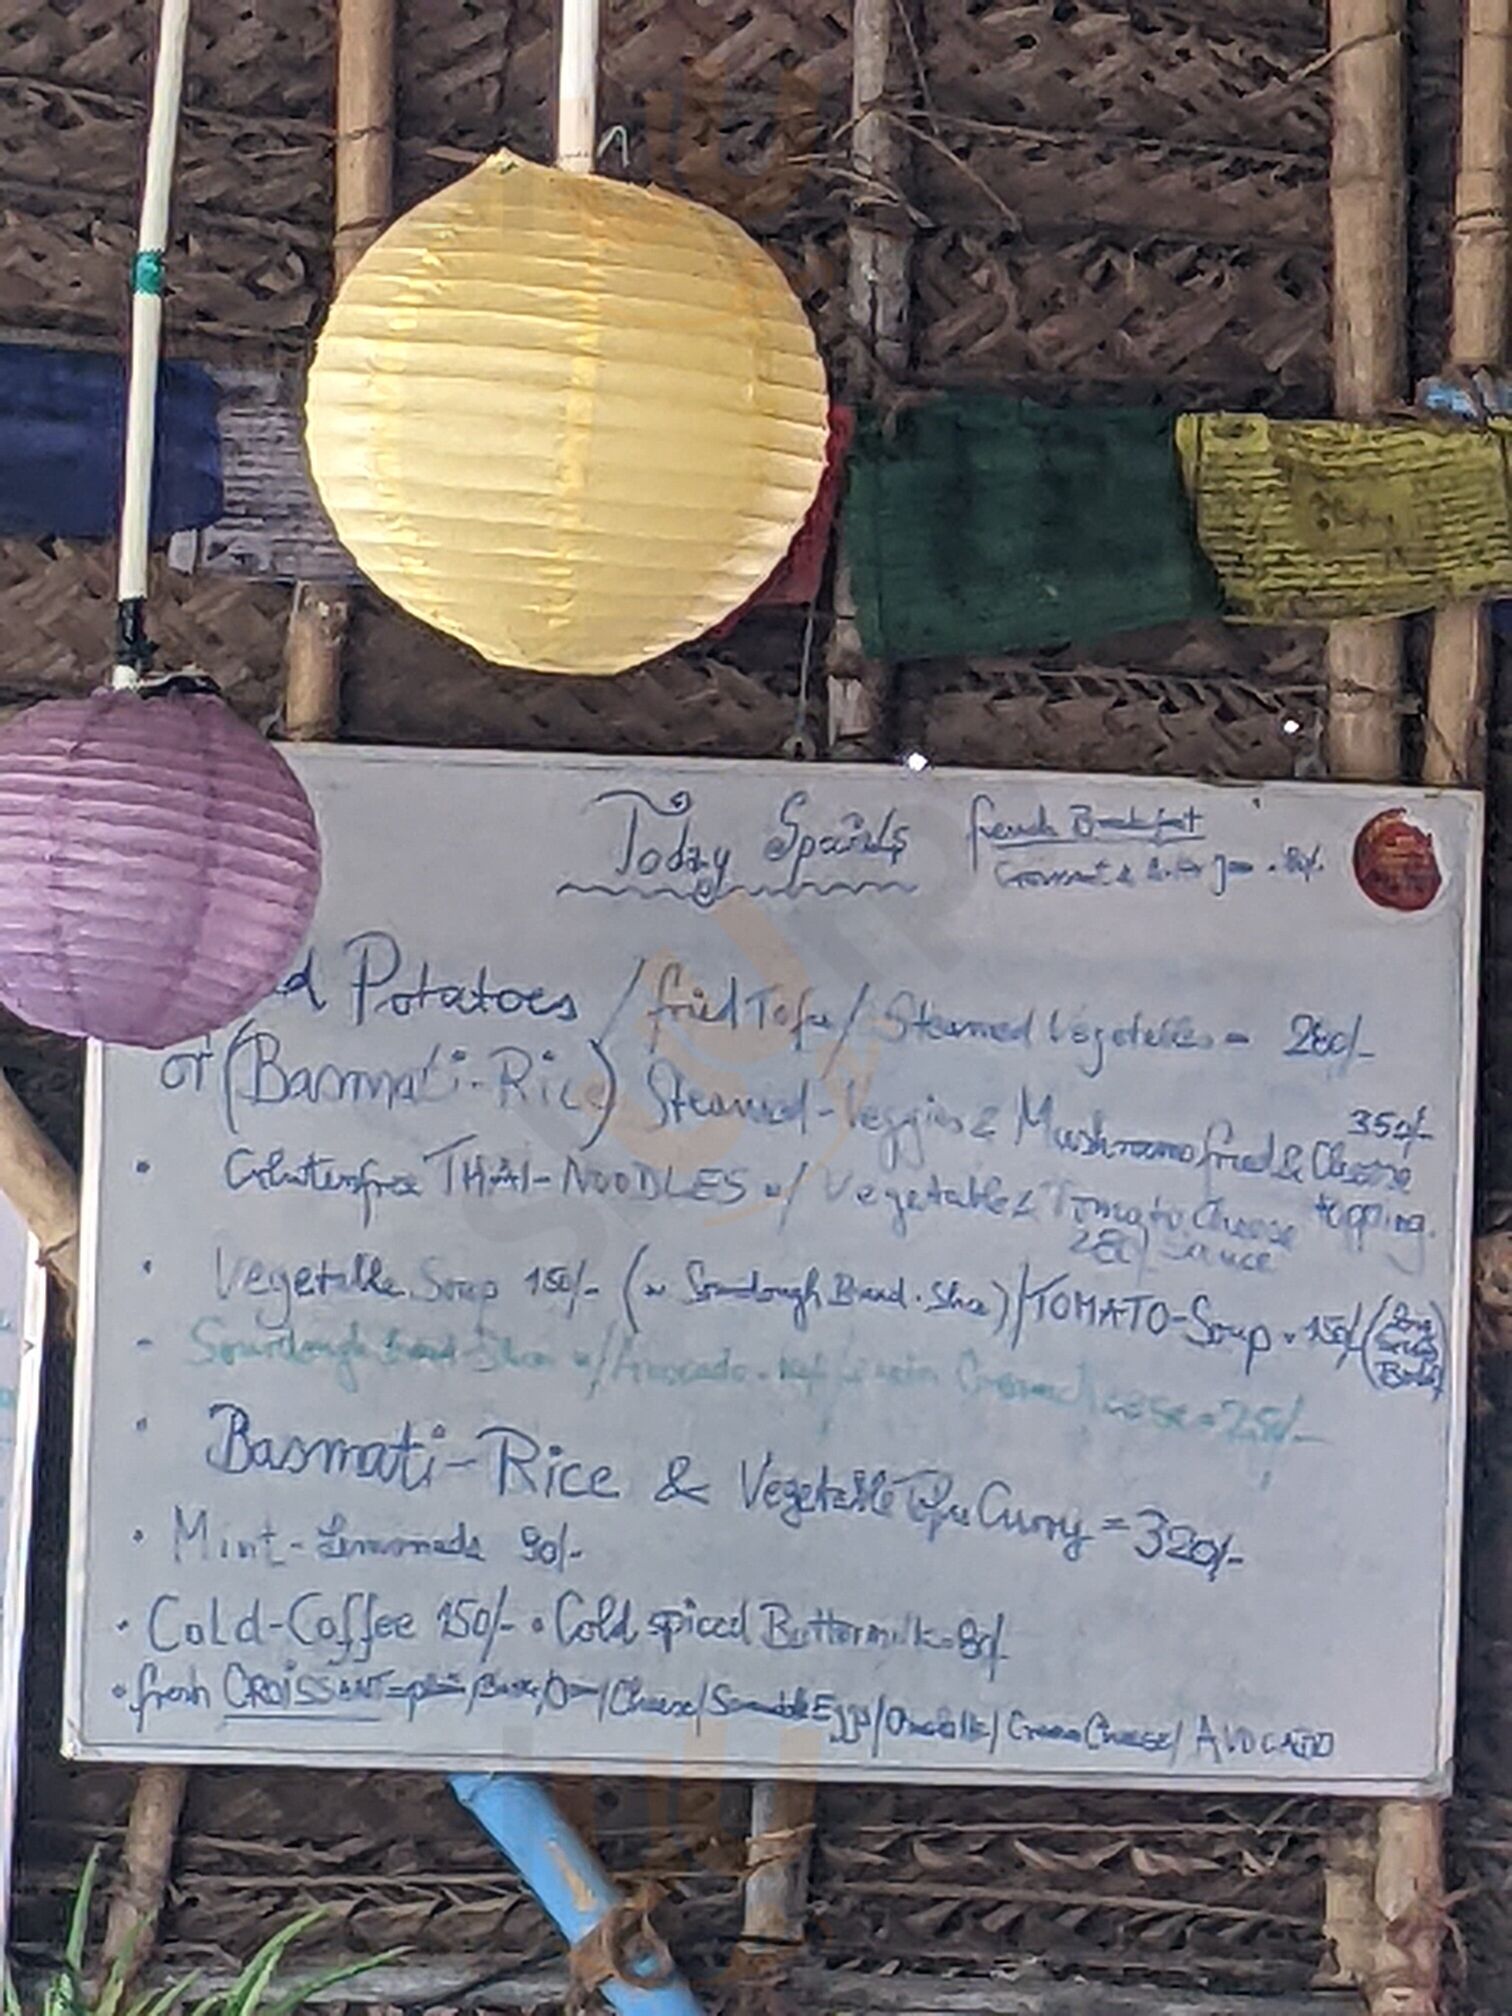 Today Specials
French Breakfast
Croissant & Butter Jam 80/-
Potatoes / fried Tofu / Steamed Vegetables = 280/-
or (Basmati-Rice) Steamed-Veggies & Mushrooms fried & Cheese topping. 350/-
• Glutenfree THAI-NOODLES w/ Vegetable & Tomato Cheese Sauce 280/-
• Vegetable Soup 150/- (w Sourdough Bread.Slice) / TOMATO-Soup • 150/-
- Sourdough bread Slice w/ Avocado Creamcheese = 250/-
• Basmati-Rice & Vegetable Tofu Curry = 320/-
• Mint-Lemonade 90/-
• Cold-Coffee 150/- • Cold spiced Buttermilk = 80/-
• fresh CROISSANT = plain / Butter / Jam / Cheese / Scramble Eggs / Omelette / Cream Cheese / AVOCADO